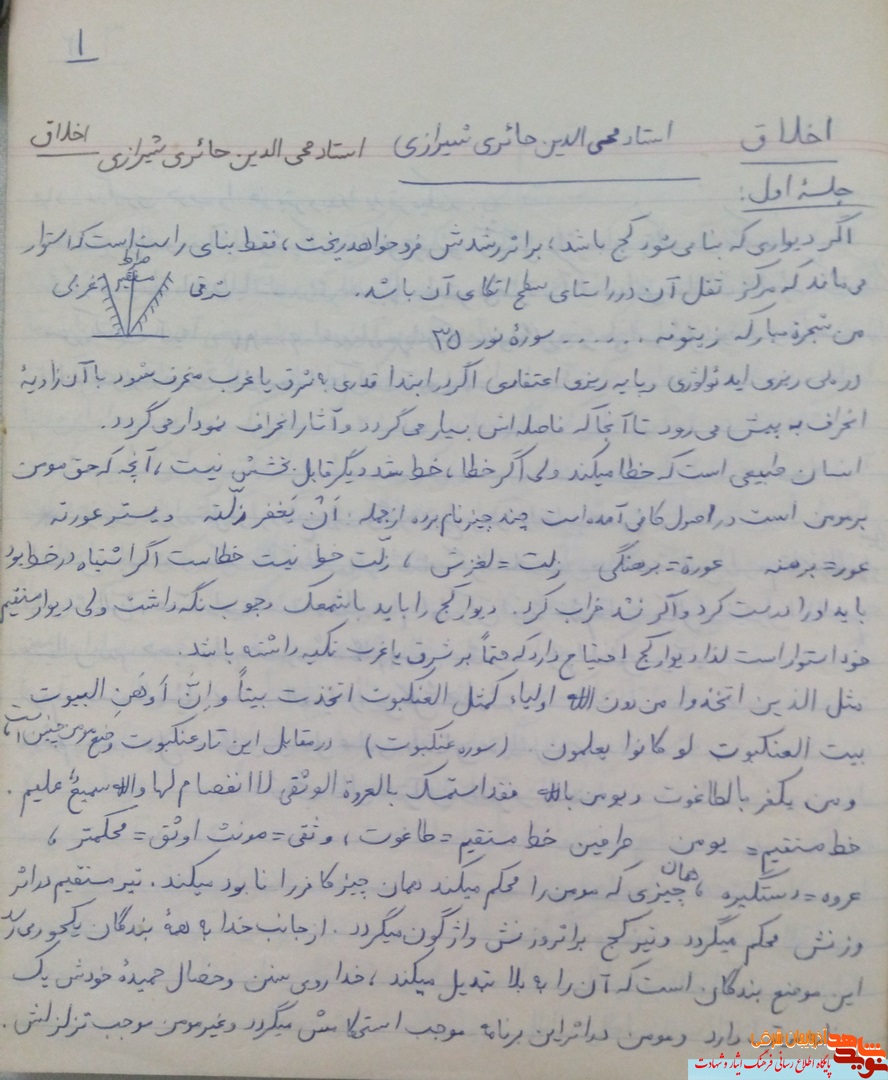 ۱
اخلاق استاد محی الدین حائری شیرازی استاد محی الدین حائری شیرازی اخلاق
جلسهٔ اول:
اگر دیواری که بنا می شود کج باشد، براثر رشدش فرو خواهد ریخت، فقط بنای راست است که استوار
می ماند که مرکز ثقل آن در راستای سطح اتکای آن باشد. شرقی صراط مستقیم غربی
من شجرة مبارکه زیتونه ...... سورهٔ نور ۳۵
در پی ریزی ایدئولوژی و پایه ریزی اعتقادی اگر در ابتدا قدری به شرق یا غرب منحرف شود با آن زاویهٔ
انحراف به پیش می رود تا آنجا که فاصله اش بسیار می گردد و آثار انحراف نمودار می گردد.
انسان طبیعی است که خطا میکند ولی اگر خطا، خط شد دیگر قابل بخشش نیست، آنچه که حق مومن
بر مومن است در اصول کافی آمده است چند چیز نام برده از جمله: أنْ یَغفر زلّته و یستر عورته
عور= برهنه عورة= برهنگی زلت = لغزش، زلّت خط نیست خطاست اگر اشتباه در خط بود
باید او را درست کرد و اگر نشد خراب کرد. دیوار کج را باید با شمعک و چوب نگه داشت ولی دیوار مستقیم
خود استوار است لذا دیوار کج احتیاج دارد که حتماً بر شرق یا غرب تکیه داشته باشد.
مثل الذین اتخذوا من دون الله اولیاء کمثل العنکبوت اتخذت بیتاً و اِنّ اَوهَنِ البیوت
بیت العنکبوت لو کانوا یعلمون. (سوره عنکبوت) در مقابل این تار عنکبوت وضع مومن چنین است
و من یکفر بالطاغوت و یومن بالله فقد استمسک بالعروة الوثقی لا انفصام لها والله سمیعٌ علیم.
خط مستقیم= یومن طرفین خط مستقیم = طاغوت، وثقی = مونث اوثق = محکمتر،
عروه = دستگیره، همان چیزی که مومن را محکم میکند همان چیز کافر را نابود میکند. تیر مستقیم در اثر
وزنش محکم میگردد و تیر کج براثر وزنش واژگون میگردد. از جانب خدا به همهٔ بندگان یکجور می رسد
این موضع بندگان است که آن را به بلا تبدیل میکند، خدا روی سنن و خصال حمیدهٔ خودش یک
دارد و مومن در اثر این برنامه موجب استحکامش میگردد و غیر مومن موجب تزلزلش.
نوید شاهد آذربایجان شرقی
پایگاه اطلاع رسانی فرهنگ ایثار و شهادت